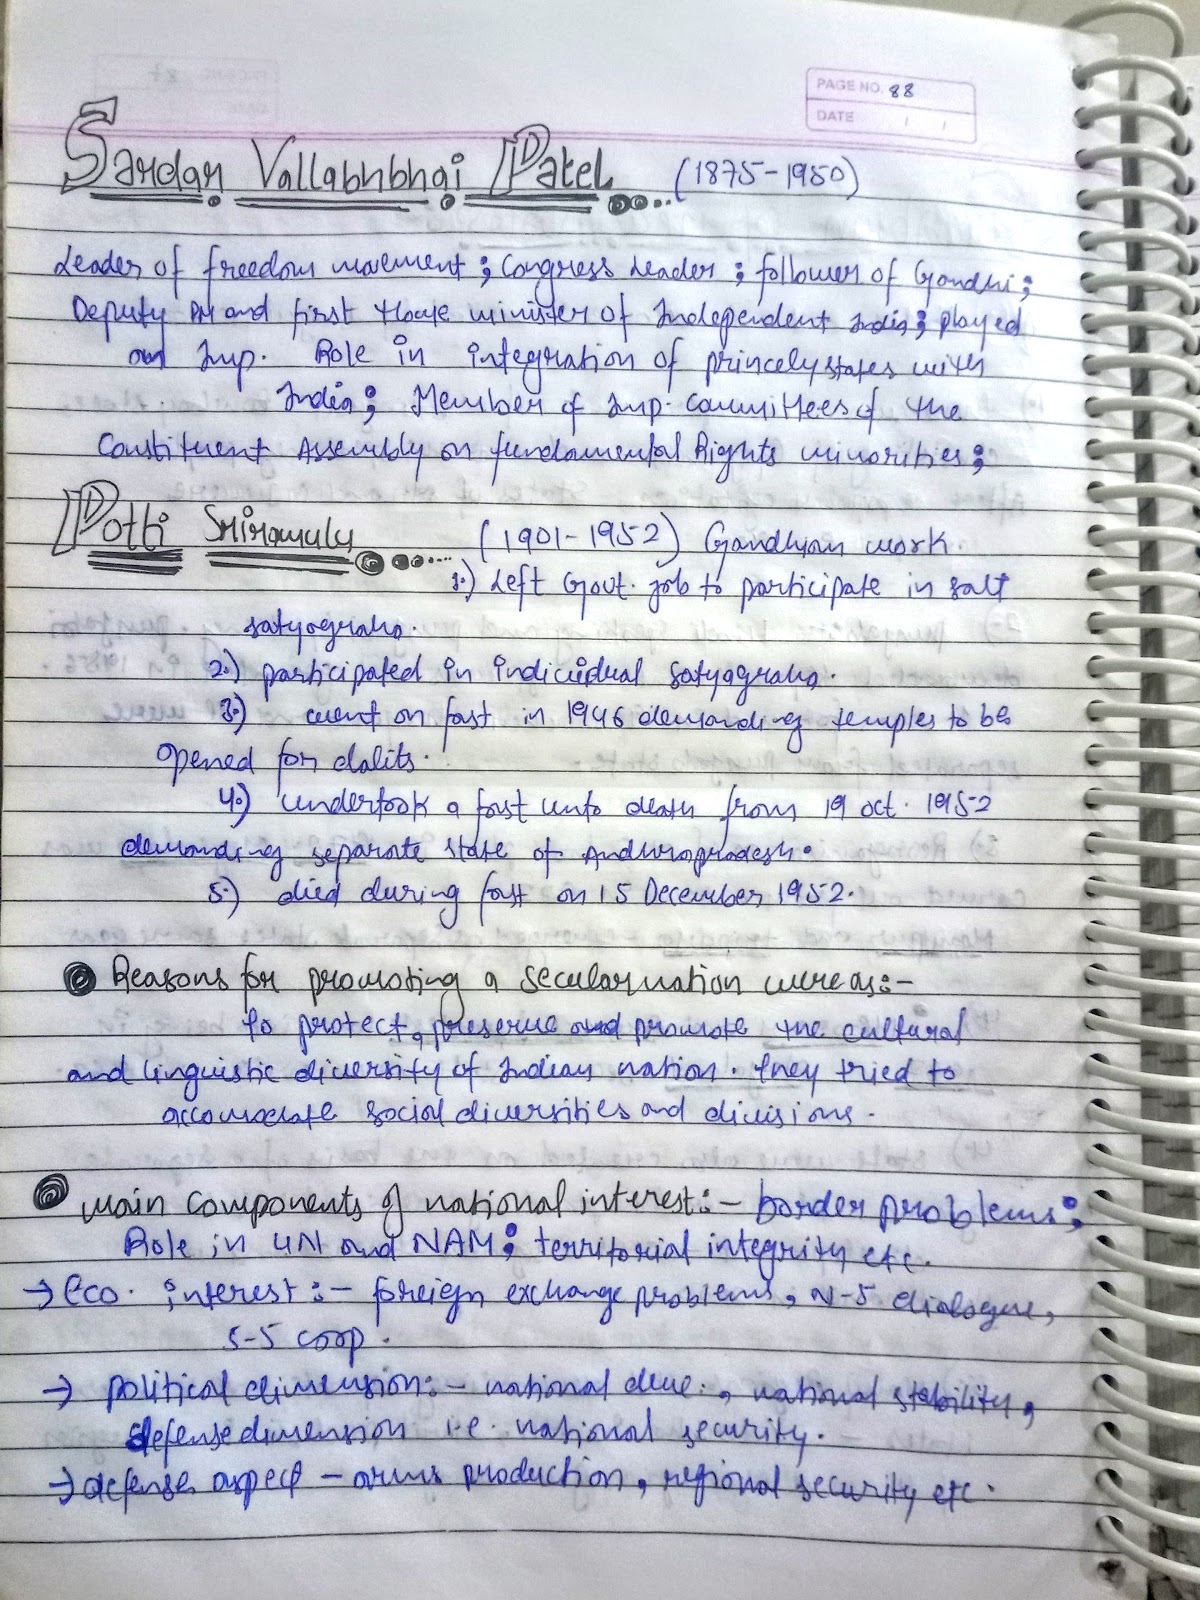 PAGE NO. 88
DATE
Sardar Vallabhbhai Patel (1875-1950)
Leader of freedom movement; Congress Leader; follower of Gandhi;
Deputy PM and first Home minister of Independent India; played
an Imp. Role in integration of princely states with
India; Member of Imp. committees of the
Constituent Assembly on fundamental Rights minorities;
Potti Sriramulu (1901-1952) Gandhian work.
1.) Left Govt. job to participate in salt
satyograha.
2.) participated in individual satyagraha.
3.) went on fast in 1946 demanding temples to be
opened for dalits.
4.) undertook a fast unto death from 19 oct. 1952
demanding separate state of Andhrapradesh.
5.) died during fast on 15 December 1952.
Reasons for promoting a secular nation were as:-
to protect, preserve and promote the cultural
and linguistic diversity of Indian nation. they tried to
accomodate social diversities and divisions.
main components of national interest:- border problems;
Role in UN and NAM; territorial integrity etc.
→ Eco. interest:- foreign exchange problems, N-S dialogue,
S-S coop.
→ political dimension:- national deve., national stability,
defense dimension i.e. national security.
→ defense aspect - arms production, regional security etc.